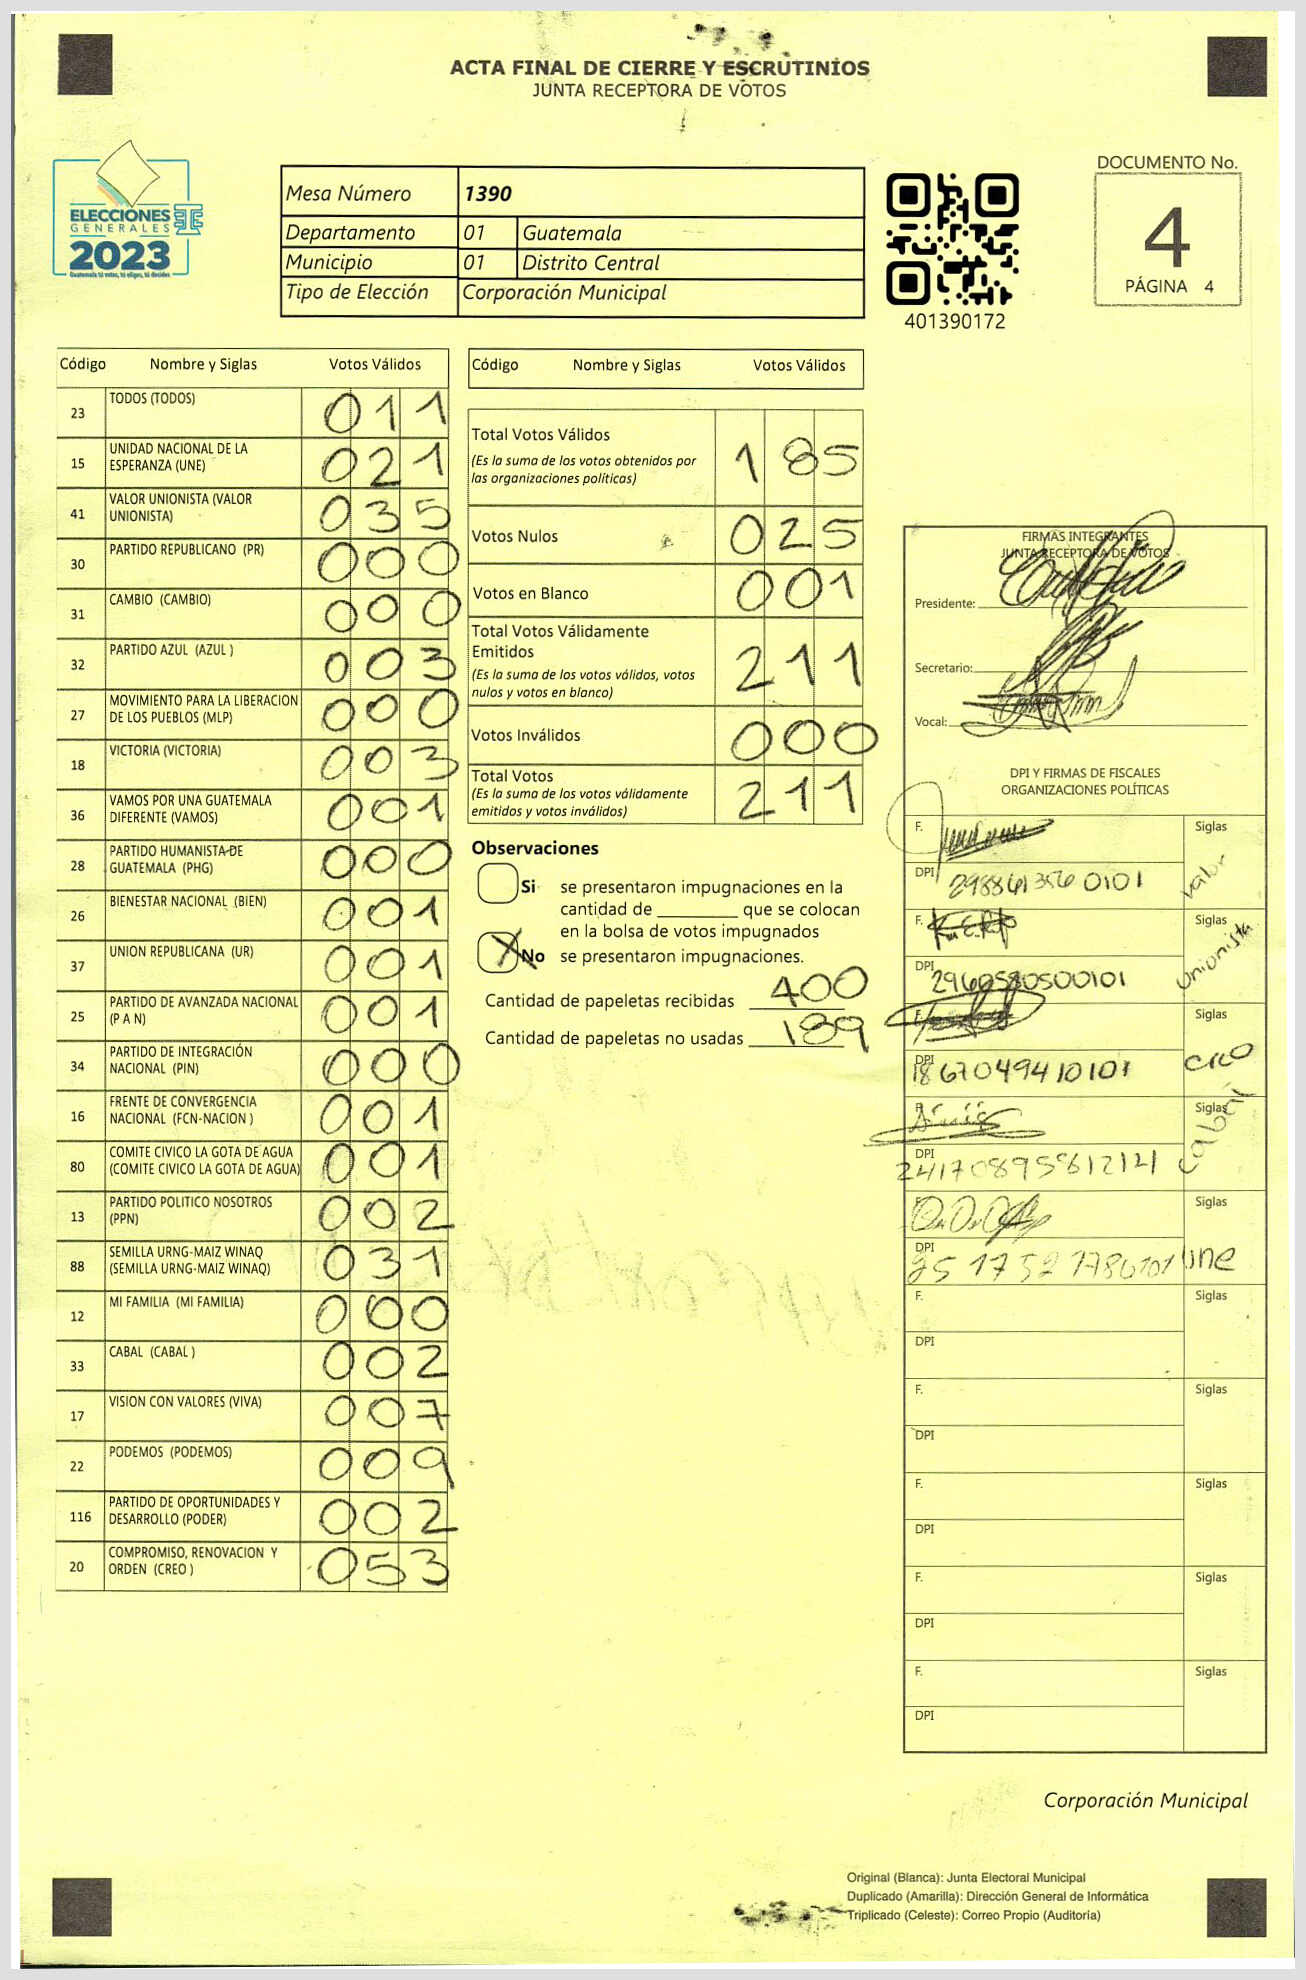 ACTA FINAL DE CIERRE Y ESCRUTINIOS
JUNTA RECEPTORA DE VOTOS
ELECCIONES
GENERALES
2023
Guatemala tú votas, tú eliges, tú decides
Mesa Número 1390
Departamento 01 Guatemala
Municipio 01 Distrito Central
Tipo de Elección Corporación Municipal
401390172
DOCUMENTO No.
4
PÁGINA 4
Código Nombre y Siglas Votos Válidos
23 TODOS (TODOS) 011
15 UNIDAD NACIONAL DE LA
ESPERANZA (UNE) 021
41 VALOR UNIONISTA (VALOR
UNIONISTA) 035
30 PARTIDO REPUBLICANO (PR) 000
31 CAMBIO (CAMBIO) 000
32 PARTIDO AZUL (AZUL ) 003
27 MOVIMIENTO PARA LA LIBERACION
DE LOS PUEBLOS (MLP) 000
18 VICTORIA (VICTORIA) 003
36 VAMOS POR UNA GUATEMALA
DIFERENTE (VAMOS) 001
28 PARTIDO HUMANISTA DE
GUATEMALA (PHG) 000
26 BIENESTAR NACIONAL (BIEN) 001
37 UNION REPUBLICANA (UR) 001
25 PARTIDO DE AVANZADA NACIONAL
(P A N) 001
34 PARTIDO DE INTEGRACIÓN
NACIONAL (PIN) 000
16 FRENTE DE CONVERGENCIA
NACIONAL (FCN-NACION ) 001
80 COMITE CIVICO LA GOTA DE AGUA
(COMITE CIVICO LA GOTA DE AGUA) 001
13 PARTIDO POLITICO NOSOTROS
(PPN) 002
88 SEMILLA URNG-MAIZ WINAQ
(SEMILLA URNG-MAIZ WINAQ) 031
12 MI FAMILIA (MI FAMILIA) 000
33 CABAL (CABAL ) 002
17 VISION CON VALORES (VIVA) 007
22 PODEMOS (PODEMOS) 009
116 PARTIDO DE OPORTUNIDADES Y
DESARROLLO (PODER) 002
20 COMPROMISO, RENOVACION Y
ORDEN (CREO ) 053
Código Nombre y Siglas Votos Válidos
Total Votos Válidos 185
(Es la suma de los votos obtenidos por
las organizaciones políticas)
Votos Nulos 025
Votos en Blanco 001
Total Votos Válidamente
Emitidos 211
(Es la suma de los votos válidos, votos
nulos y votos en blanco)
Votos Inválidos 000
Total Votos 211
(Es la suma de los votos válidamente
emitidos y votos inválidos)
Observaciones
Si se presentaron impugnaciones en la
cantidad de ________ que se colocan
en la bolsa de votos impugnados
X No se presentaron impugnaciones.
Cantidad de papeletas recibidas 400
Cantidad de papeletas no usadas 189
FIRMAS INTEGRANTES
JUNTA RECEPTORA DE VOTOS
Presidente:
Secretario:
Vocal:
DPI Y FIRMAS DE FISCALES
ORGANIZACIONES POLÍTICAS
F. Siglas
DPI valor
F. Siglas
DPI 2960580500101 unionista
F. Siglas
DPI 1867049410101 creo
F. Siglas
DPI cabal
F. Siglas
DPI une
F. Siglas
DPI
F. Siglas
DPI
F. Siglas
DPI
F. Siglas
DPI
F. Siglas
DPI
Corporación Municipal
Original (Blanca): Junta Electoral Municipal
Duplicado (Amarilla): Dirección General de Informática
Triplicado (Celeste): Correo Propio (Auditoría)